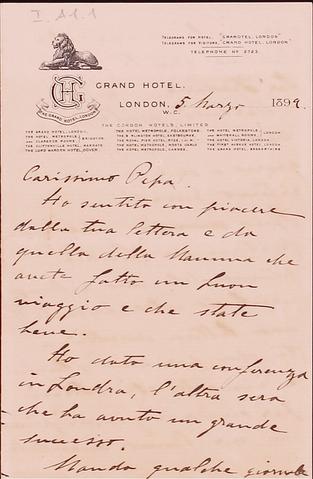 I. A1.1
TELEGRAMS FOR HOTEL, "GRANOTEL, LONDON"
TELEGRAMS FOR VISITORS, "GRAND HOTEL, LONDON"
TELEPHONE Nº 2723.
GH
THE GRAND HOTEL, LONDON
GRAND HOTEL,
LONDON, 5 Marzo 1899.
W.C.
THE GORDON HOTELS, LIMITED
THE GRAND HOTEL, LONDON. THE HOTEL METROPOLE, FOLKESTONE. THE HOTEL METROPOLE,
THE HOTEL METROPOLE, AND WHITEHALL ROOMS,
AND CLARENCE ROOMS, BRIGHTON THE HOTEL VICTORIA, LONDON
THE CLIFTONVILLE HOTEL, MARGATE THE HOTEL METROPOLE, MONTE CARLO THE FIRST AVENUE HOTEL, LONDON
THE LORD WARDEN HOTEL, DOVER THE HOTEL METROPOLE, CANNES. THE GRAND HOTEL,
Carissimo Pepa.
Ho sentito con piacere
dalla tua lettera e da
quella della Mamma che
avete fatto un buon
viaggio e che state
bene.
Ho dato una conferenza
in Londra, l'altra sera
che ha avuto un grande
successo.
Mando qualche giornale